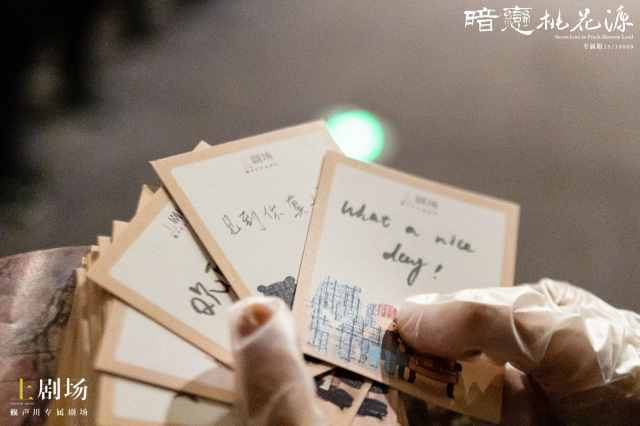 暗戀桃花源
Secret Love in Peach Blossom Land
专属版15/10000
剧场
剧场
What a nice
day!
见到你真
晚
上剧场
赖声川专属剧场